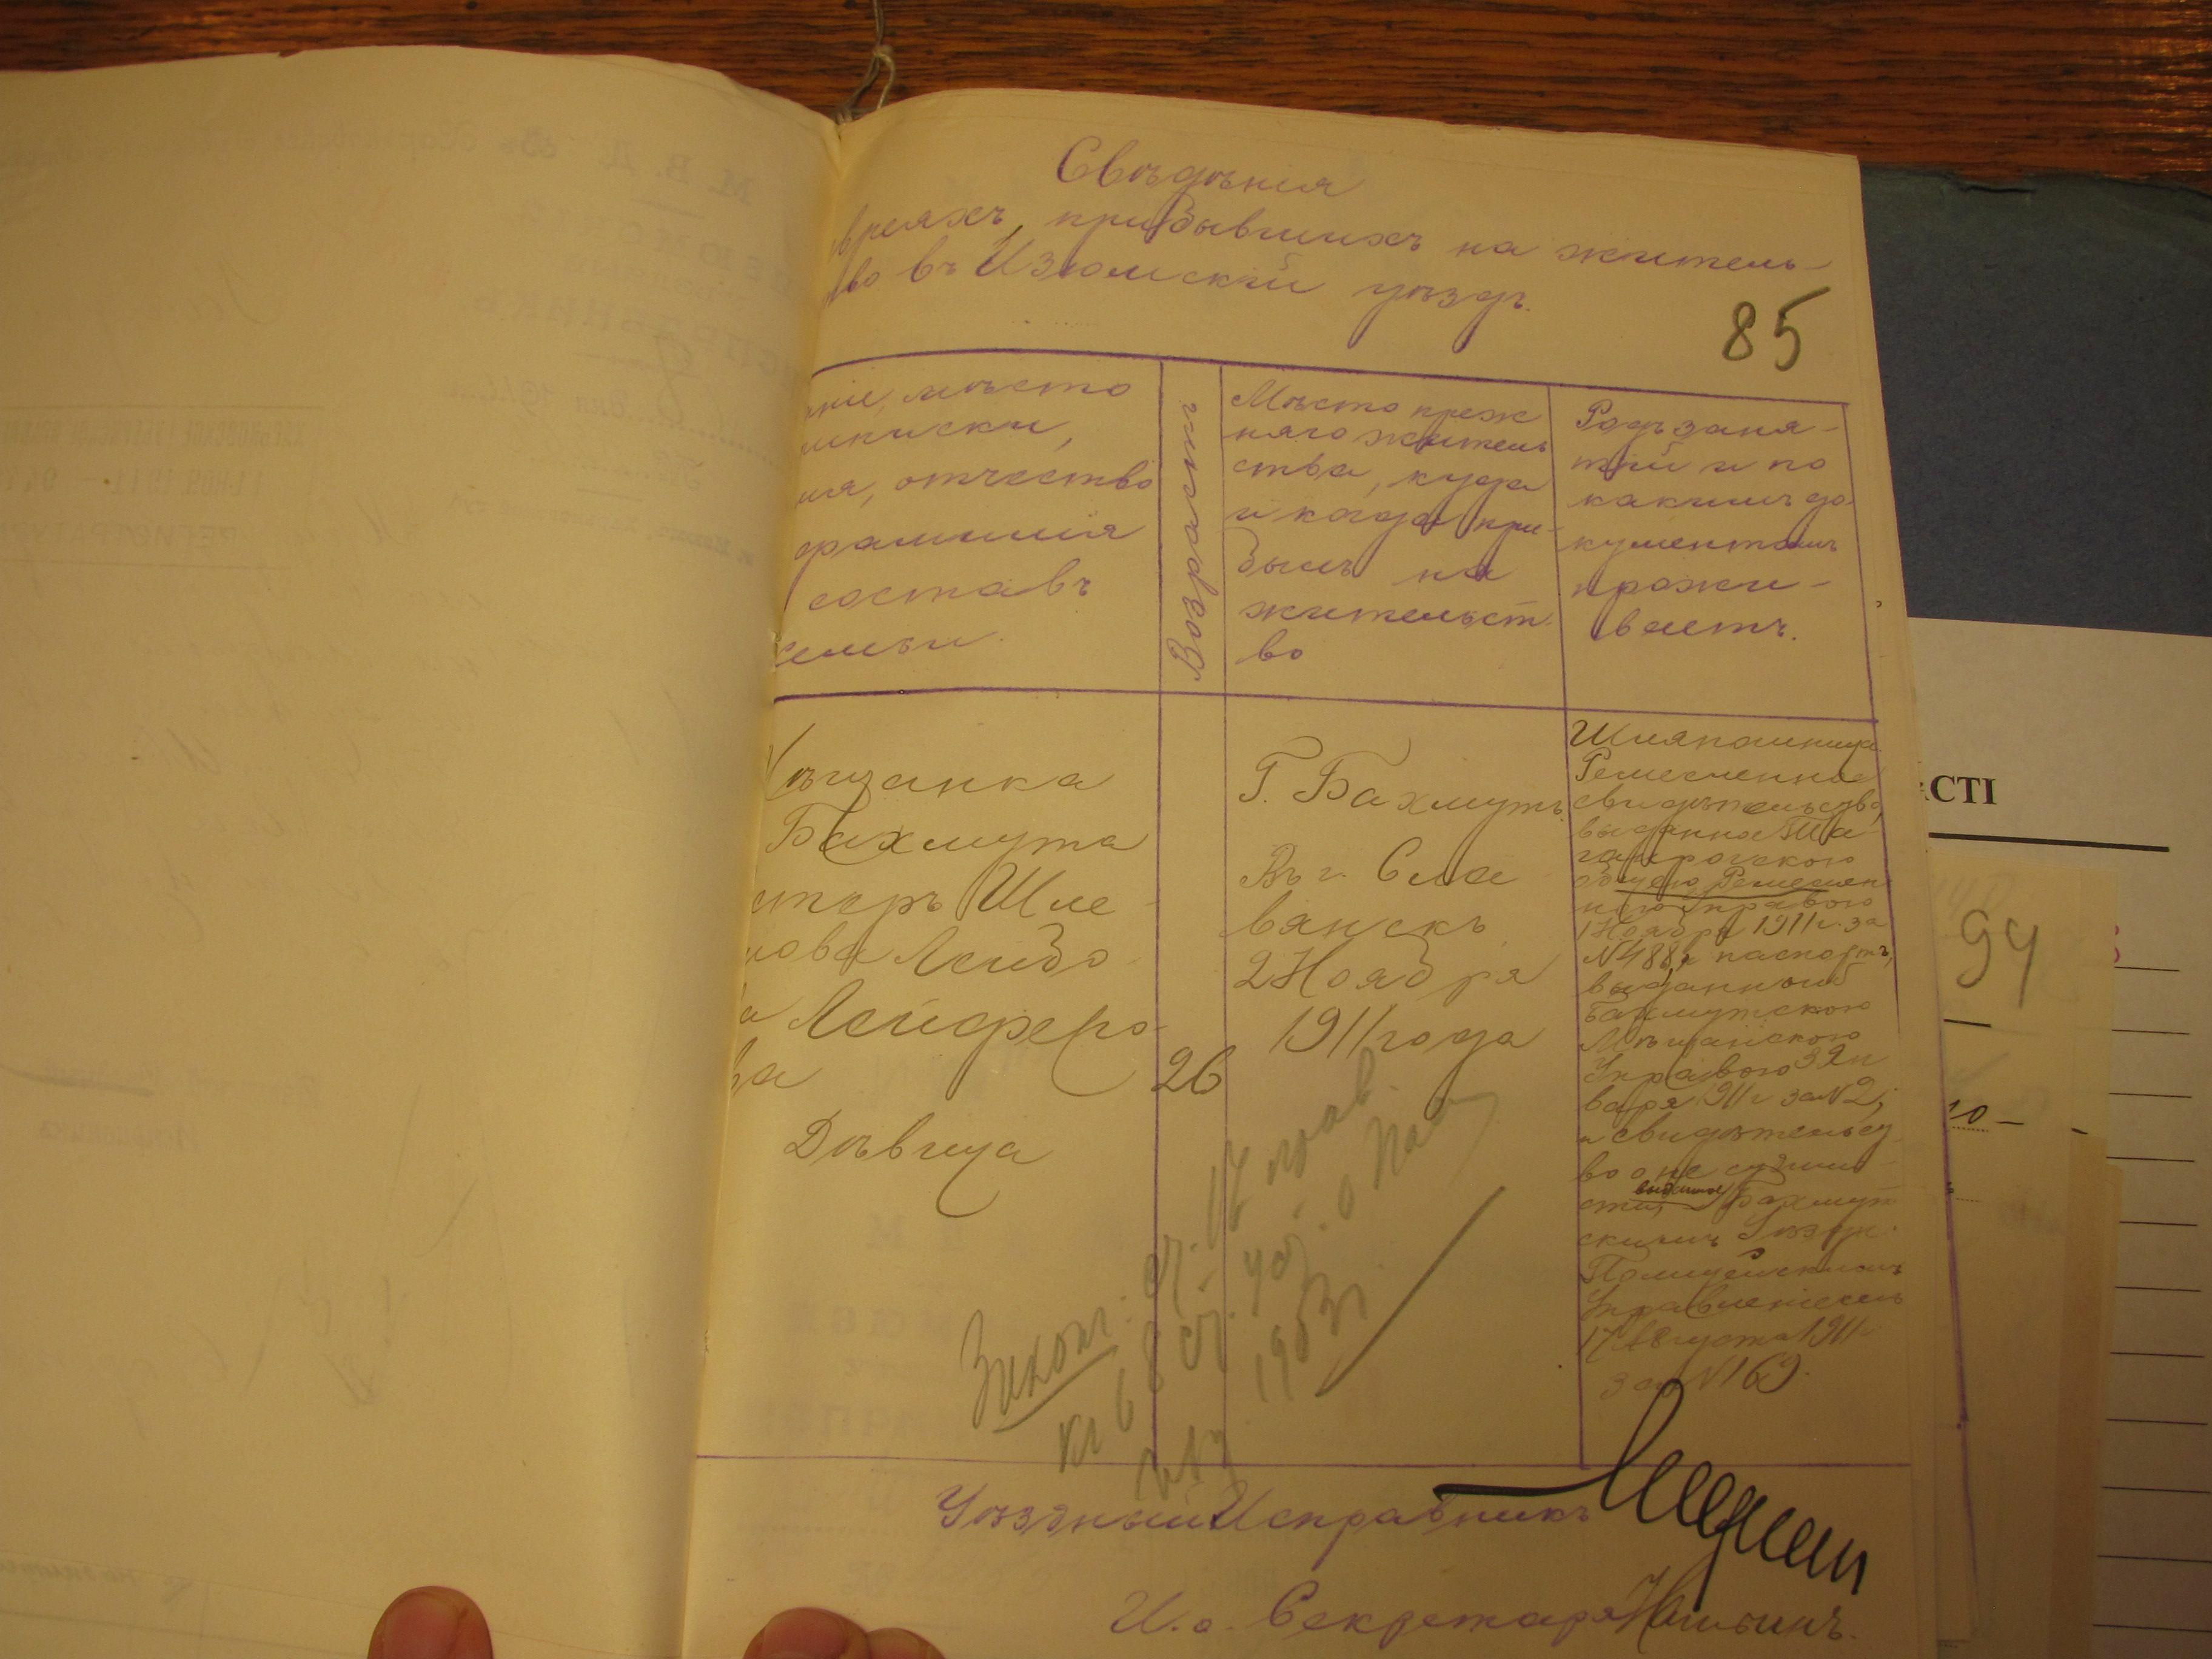 Свѣдѣнія
евреяхъ, прибывшихъ на житель-
во въ Изюмскій уѣздъ.
85
ніе, мѣсто
иписки,
мя, отчество
фамилія
составъ
семьи.
Возрастъ
Мѣсто преж
няго житель
ства, куда
и когда при-
былъ на
жительст
во
Родъ заня-
тій и по
какимъ до
кументамъ
прожи-
ваетъ.
Мѣщанка
Бахмута
стеръ Шле-
мова Лейбо-
ва Лейферо-
ва
Дѣвица
26
Г. Бахмутъ.
Въ г. Сла
вянскъ
2 Ноября
1911 года
Шляпошница.
Ремесленное
свидѣтельство,
выданное Та
ганрогскою
общею Ремеслен
ною Управою
1 Ноября 1911 г. за
№ 488, и паспортъ,
выданный
Бахмутскою
Мѣщанскою
Управою 3 Ян
варя 1911 г за № 2,
и свидѣтельст
во о не судимо
сти, выданное Бахмут
скимъ Уѣздн.
Полицейскимъ
Управленіемъ
17 Августа 1911 г.
за № 169.
Законн. ст. 17
68 ст. уст. о Пасп
1903 г.
Уѣздный Исправникъ
И. о. Секретаря
СТІ
94
10